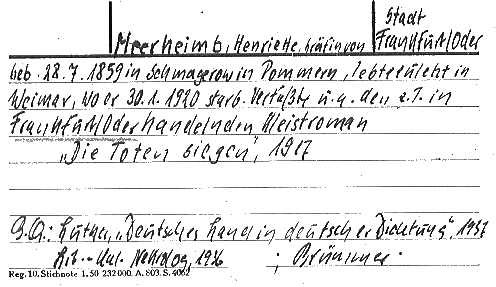 Stadt
Meerheimb, Henriette, Gräfin von Frankfurt/Oder
geb. 28.7.1859 in Schmagerow in Pommern, lebte zuletzt in
Weimar, wo er 30.1.1920 starb. Verfaßte u.a. den z.T. in
Frankfurt/Oder handelnden Kleistroman
„Die Toten siegen", 1917
Luther, „Deutsches Land in deutscher Dichtung". 1937
Nekrolog, 1936 ; Brümmer.
Reg. 10. Stichnote 1. 50 232000. A. 803. S. 4062